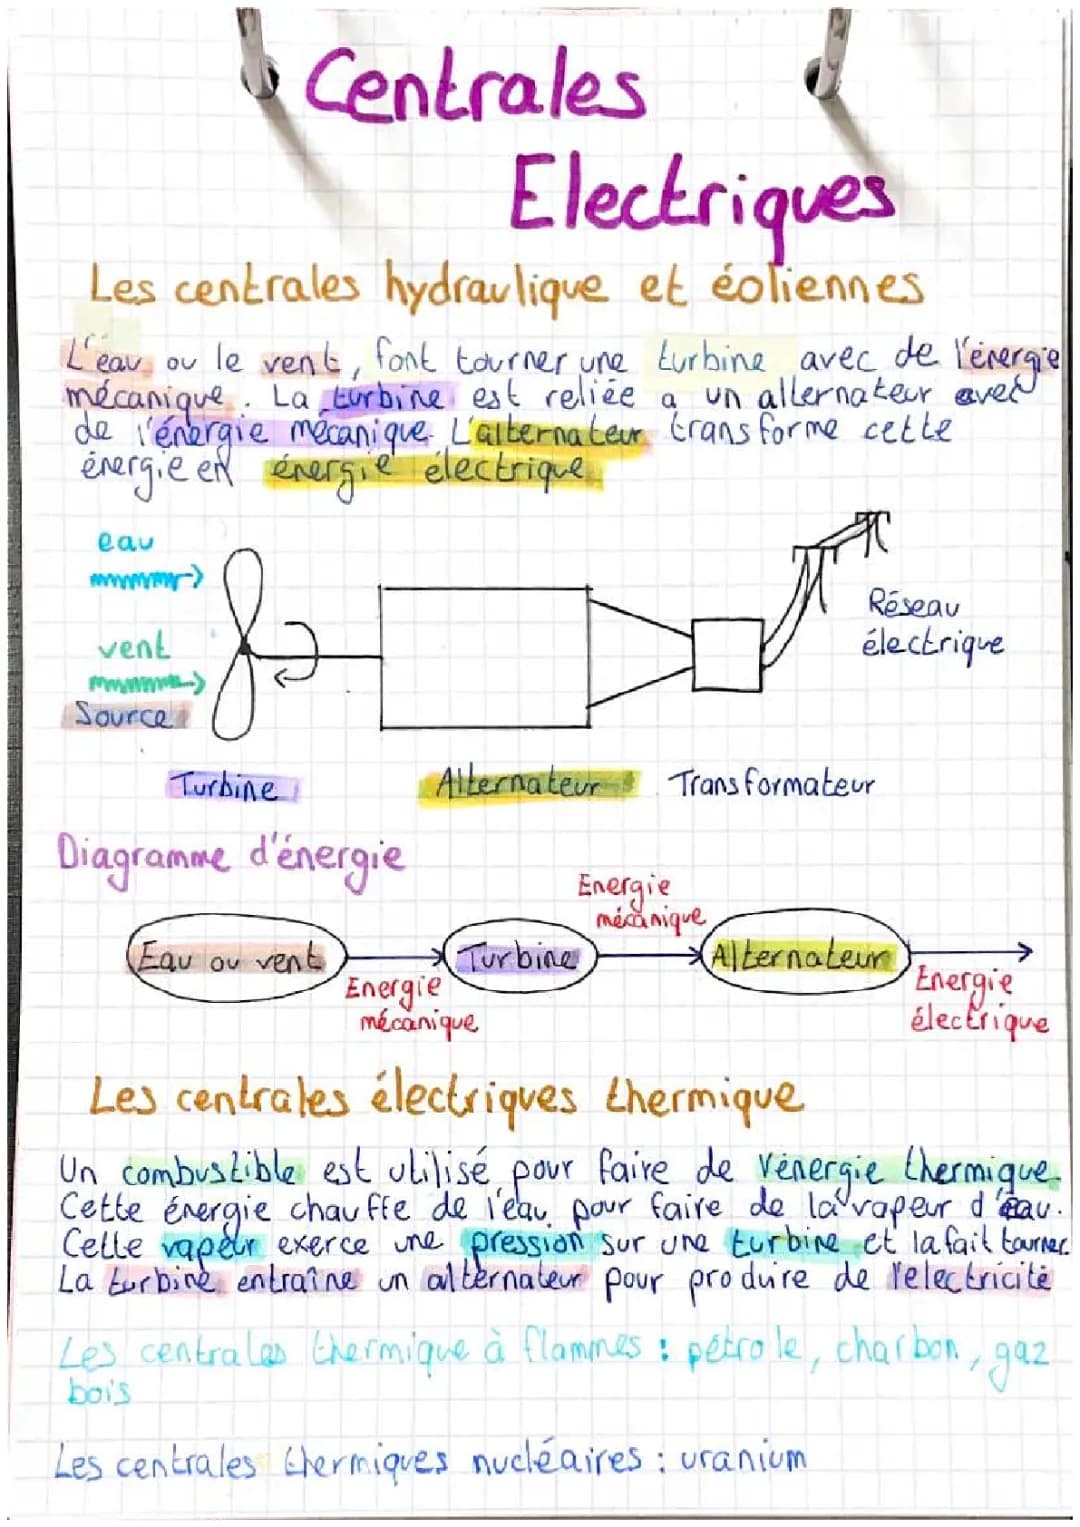 Centrales
Electriques
Les centrales hydraulique et éoliennes
L'eau ou le vent, font tourner une turbine avec de l'énergie
mécanique. La turbine est reliée a un alternateur avec
de l'énergie mécanique. L'alternateur transforme cette
énergie en énergie électrique
eau
vent
Source
Réseau
électrique
Turbine
Alternateur
Transformateur
Diagramme d'énergie
Energie
mécanique
Eau ou vent
Turbine
Alternateur
Energie
mécanique
Energie
électrique
Les centrales électriques thermique
Un combustible est utilisé pour faire de l'énergie thermique.
Cette énergie chauffe de l'eau pour faire de la vapeur d'eau.
Cette vapeur exerce une pression sur une turbine et la fait tourner
La turbine entraîne un alternateur pour produire de l'electricité
Les centrales thermique à flammes : pétrole, charbon, gaz
bois
Les centrales thermiques nucléaires : uranium